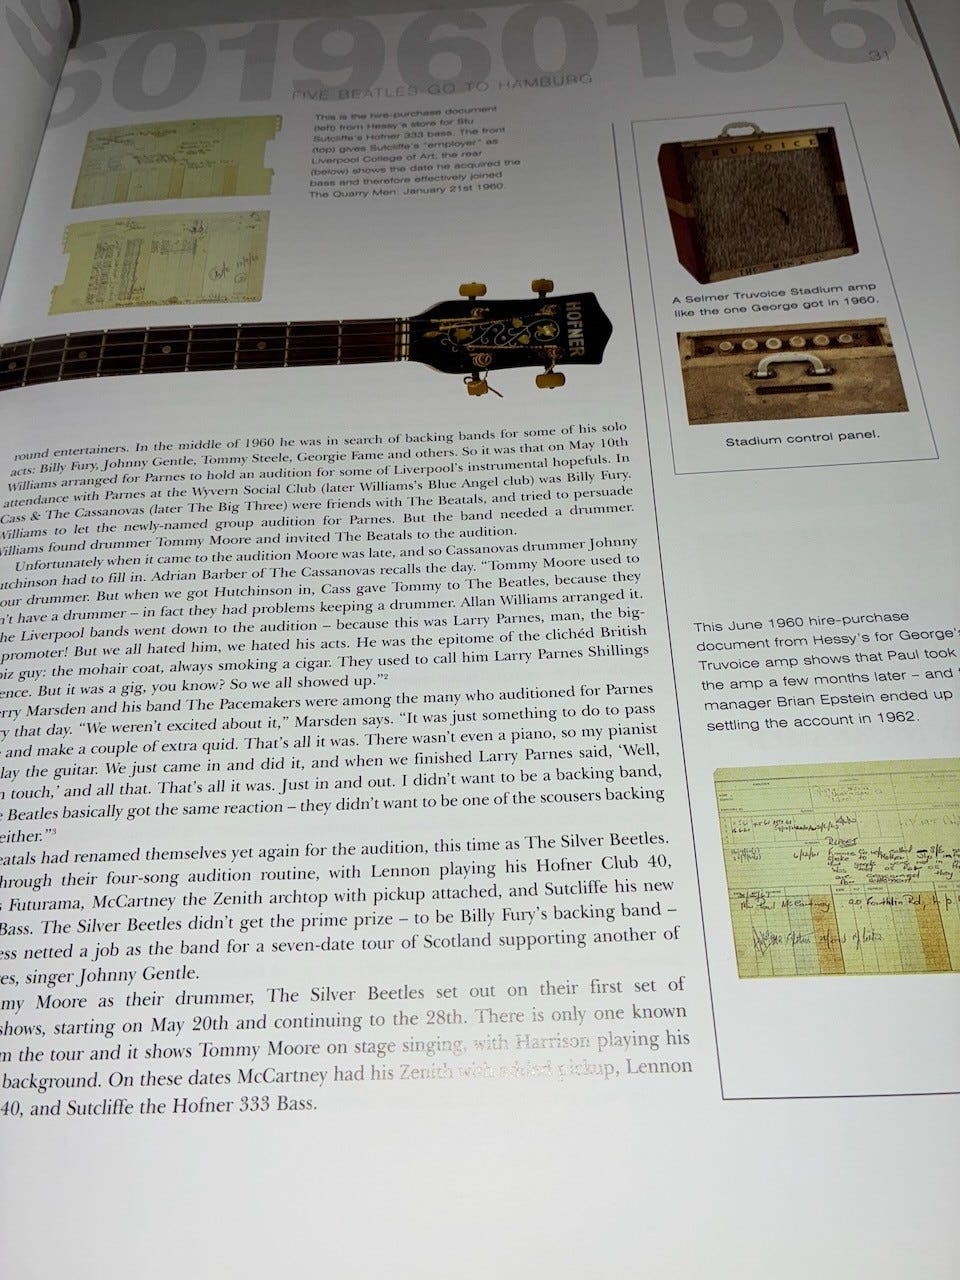 601960196
31
FIVE BEATLES GO TO HAMBURG
This is the hire-purchase document
(left) from Hessy's store for Stu
Sutcliffe's Hofner 333 bass. The front
(top) gives Sutcliffe's "employer" as
Liverpool College of Art; the rear
(below) shows the date he acquired the
bass and therefore effectively joined
The Quarry Men: January 21st 1960.
HOFNER
TRUVOICE
A Selmer Truvoice Stadium amp
like the one George got in 1960.
Stadium control panel.
round entertainers. In the middle of 1960 he was in search of backing bands for some of his solo
acts: Billy Fury, Johnny Gentle, Tommy Steele, Georgie Fame and others. So it was that on May 10th
Williams arranged for Parnes to hold an audition for some of Liverpool's instrumental hopefuls. In
attendance with Parnes at the Wyvern Social Club (later Williams's Blue Angel club) was Billy Fury.
Cass & The Cassanovas (later The Big Three) were friends with The Beatals, and tried to persuade
Williams to let the newly-named group audition for Parnes. But the band needed a drummer.
Williams found drummer Tommy Moore and invited The Beatals to the audition.
Unfortunately when it came to the audition Moore was late, and so Cassanovas drummer Johnny
utchinson had to fill in. Adrian Barber of The Cassanovas recalls the day. "Tommy Moore used to
our drummer. But when we got Hutchinson in, Cass gave Tommy to The Beatles, because they
n't have a drummer – in fact they had problems keeping a drummer. Allan Williams arranged it.
he Liverpool bands went down to the audition – because this was Larry Parnes, man, the big-
promoter! But we all hated him, we hated his acts. He was the epitome of the clichéd British
biz guy: the mohair coat, always smoking a cigar. They used to call him Larry Parnes Shillings
ence. But it was a gig, you know? So we all showed up."2
rry Marsden and his band The Pacemakers were among the many who auditioned for Parnes
y that day. "We weren't excited about it," Marsden says. "It was just something to do to pass
e and make a couple of extra quid. That's all it was. There wasn't even a piano, so my pianist
lay the guitar. We just came in and did it, and when we finished Larry Parnes said, 'Well,
n touch,' and all that. That's all it was. Just in and out. I didn't want to be a backing band,
e Beatles basically got the same reaction – they didn't want to be one of the scousers backing
either."3
eatals had renamed themselves yet again for the audition, this time as The Silver Beetles.
hrough their four-song audition routine, with Lennon playing his Hofner Club 40,
s Futurama, McCartney the Zenith archtop with pickup attached, and Sutcliffe his new
Bass. The Silver Beetles didn't get the prime prize – to be Billy Fury's backing band –
ess netted a job as the band for a seven-date tour of Scotland supporting another of
es, singer Johnny Gentle.
my Moore as their drummer, The Silver Beetles set out on their first set of
shows, starting on May 20th and continuing to the 28th. There is only one known
m the tour and it shows Tommy Moore on stage singing, with Harrison playing his
background. On these dates McCartney had his Zenith with added pickup, Lennon
40, and Sutcliffe the Hofner 333 Bass.
This June 1960 hire-purchase
document from Hessy's for George's
Truvoice amp shows that Paul took
the amp a few months later – and
manager Brian Epstein ended up
settling the account in 1962.
Paul McCartney